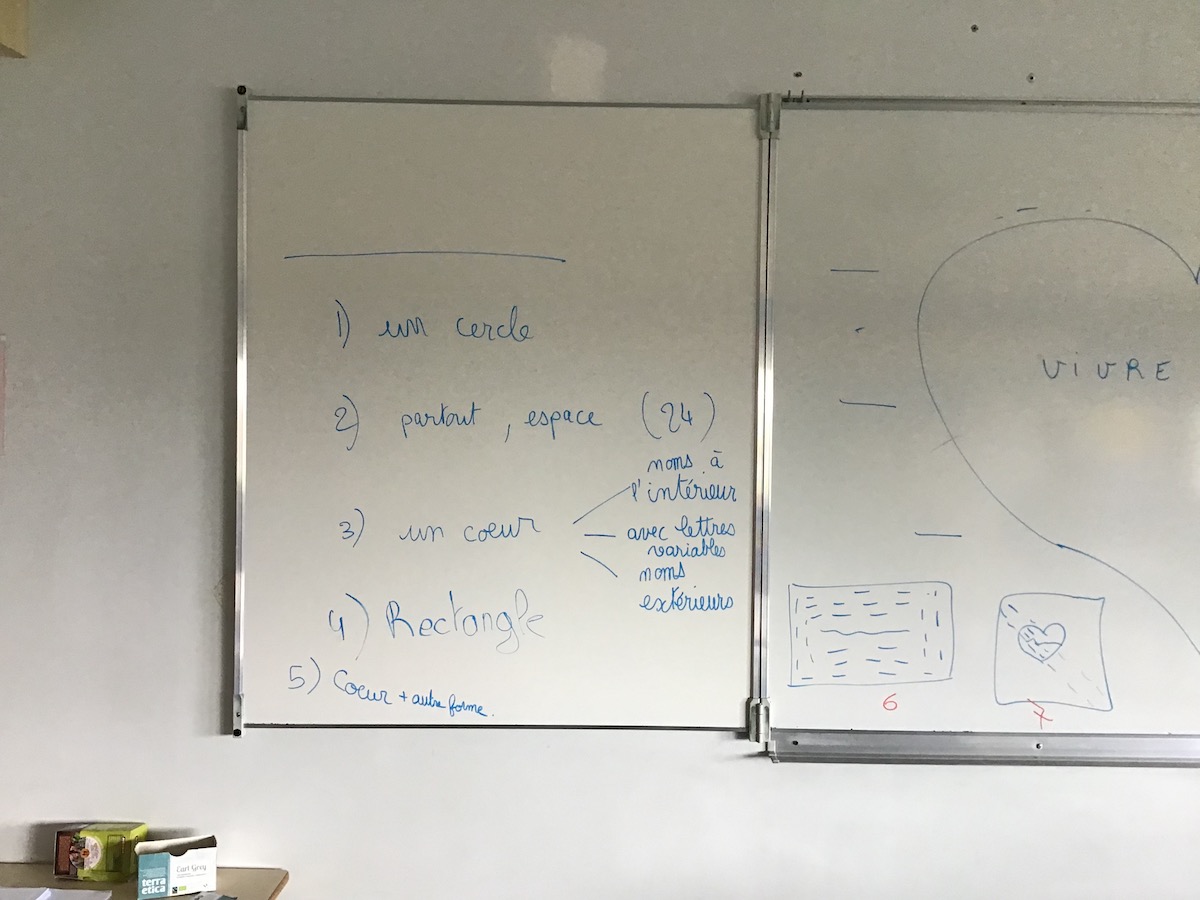 1) un cercle
2) partout, espace (24)
3) un coeur
noms à
l'intérieur
avec lettres
variables
noms
extérieurs
4) Rectangle
5) Coeur + autre forme.
VIVRE
6
7
terra
etica
Earl Grey